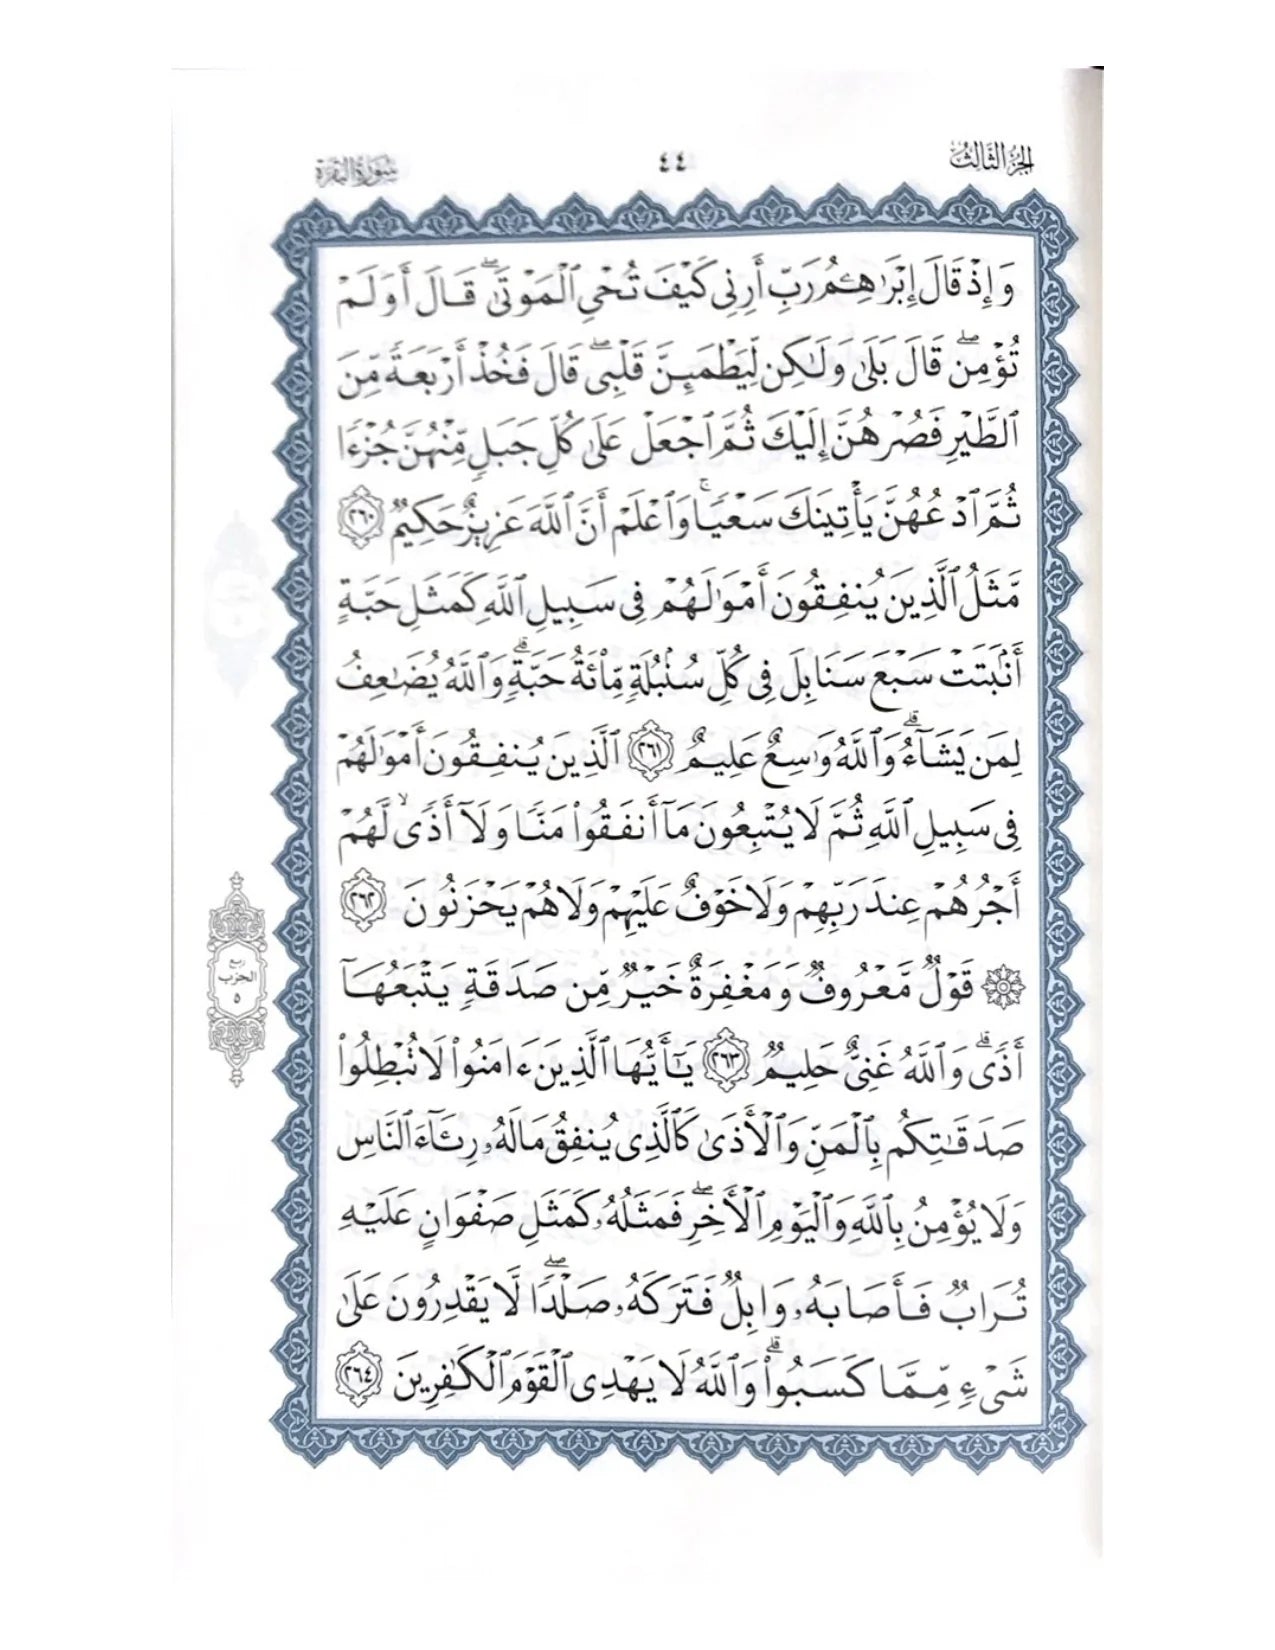 الجزء الثالث
٤٤
سورة البقرة
وَإِذْ قَالَ إِبْرَٰهِـۧمُ رَبِّ أَرِنِى كَيْفَ تُحْىِ ٱلْمَوْتَىٰۖ قَالَ أَوَلَمْ
تُؤْمِنۖ قَالَ بَلَىٰ وَلَـٰكِن لِّيَطْمَئِنَّ قَلْبِىۖ قَالَ فَخُذْ أَرْبَعَةً مِّنَ
ٱلطَّيْرِ فَصُرْهُنَّ إِلَيْكَ ثُمَّ ٱجْعَلْ عَلَىٰ كُلِّ جَبَلٍ مِّنْهُنَّ جُزْءًا
ثُمَّ ٱدْعُهُنَّ يَأْتِينَكَ سَعْيًاۚ وَٱعْلَمْ أَنَّ ٱللَّهَ عَزِيزٌ حَكِيمٌ ٢٦٠
مَّثَلُ ٱلَّذِينَ يُنفِقُونَ أَمْوَٰلَهُمْ فِى سَبِيلِ ٱللَّهِ كَمَثَلِ حَبَّةٍ
أَنۢبَتَتْ سَبْعَ سَنَابِلَ فِى كُلِّ سُنۢبُلَةٍ مِّا۟ئَةُ حَبَّةٍۗ وَٱللَّهُ يُضَـٰعِفُ
لِمَن يَشَآءُۗ وَٱللَّهُ وَٰسِعٌ عَلِيمٌ ٢٦١ ٱلَّذِينَ يُنفِقُونَ أَمْوَٰلَهُمْ
فِى سَبِيلِ ٱللَّهِ ثُمَّ لَا يُتْبِعُونَ مَآ أَنفَقُوا۟ مَنًّا وَلَآ أَذًىۙ لَّهُمْ
أَجْرُهُمْ عِندَ رَبِّهِمْ وَلَا خَوْفٌ عَلَيْهِمْ وَلَا هُمْ يَحْزَنُونَ ٢٦٢
۞ قَوْلٌ مَّعْرُوفٌ وَمَغْفِرَةٌ خَيْرٌ مِّن صَدَقَةٍ يَتْبَعُهَآ
أَذًىۗ وَٱللَّهُ غَنِىٌّ حَلِيمٌ ٢٦٣ يَـٰٓأَيُّهَا ٱلَّذِينَ ءَامَنُوا۟ لَا تُبْطِلُوا۟
صَدَقَـٰتِكُم بِٱلْمَنِّ وَٱلْأَذَىٰ كَٱلَّذِى يُنفِقُ مَالَهُۥ رِئَآءَ ٱلنَّاسِ
وَلَا يُؤْمِنُ بِٱللَّهِ وَٱلْيَوْمِ ٱلْأَخِرِۖ فَمَثَلُهُۥ كَمَثَلِ صَفْوَانٍ عَلَيْهِ
تُرَابٌ فَأَصَابَهُۥ وَابِلٌ فَتَرَكَهُۥ صَلْدًاۖ لَّا يَقْدِرُونَ عَلَىٰ
شَىْءٍ مِّمَّا كَسَبُوا۟ۗ وَٱللَّهُ لَا يَهْدِى ٱلْقَوْمَ ٱلْكَـٰفِرِينَ ٢٦٤
ربع
الحزب
٥